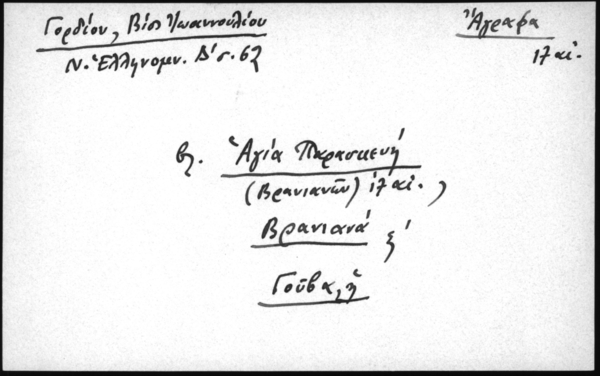 Γορδίου, Βίος Ἰωαννουλίου
Ἄγραφα
Ν. Ἑλληνομν. Δ' σ. 62
17 αἰ.
βλ. Ἁγία Παρασκευή
(Βρανιανῶν) 17 αἰ. ,
Βρανιανά ξ'
Γοῦβα, ἡ